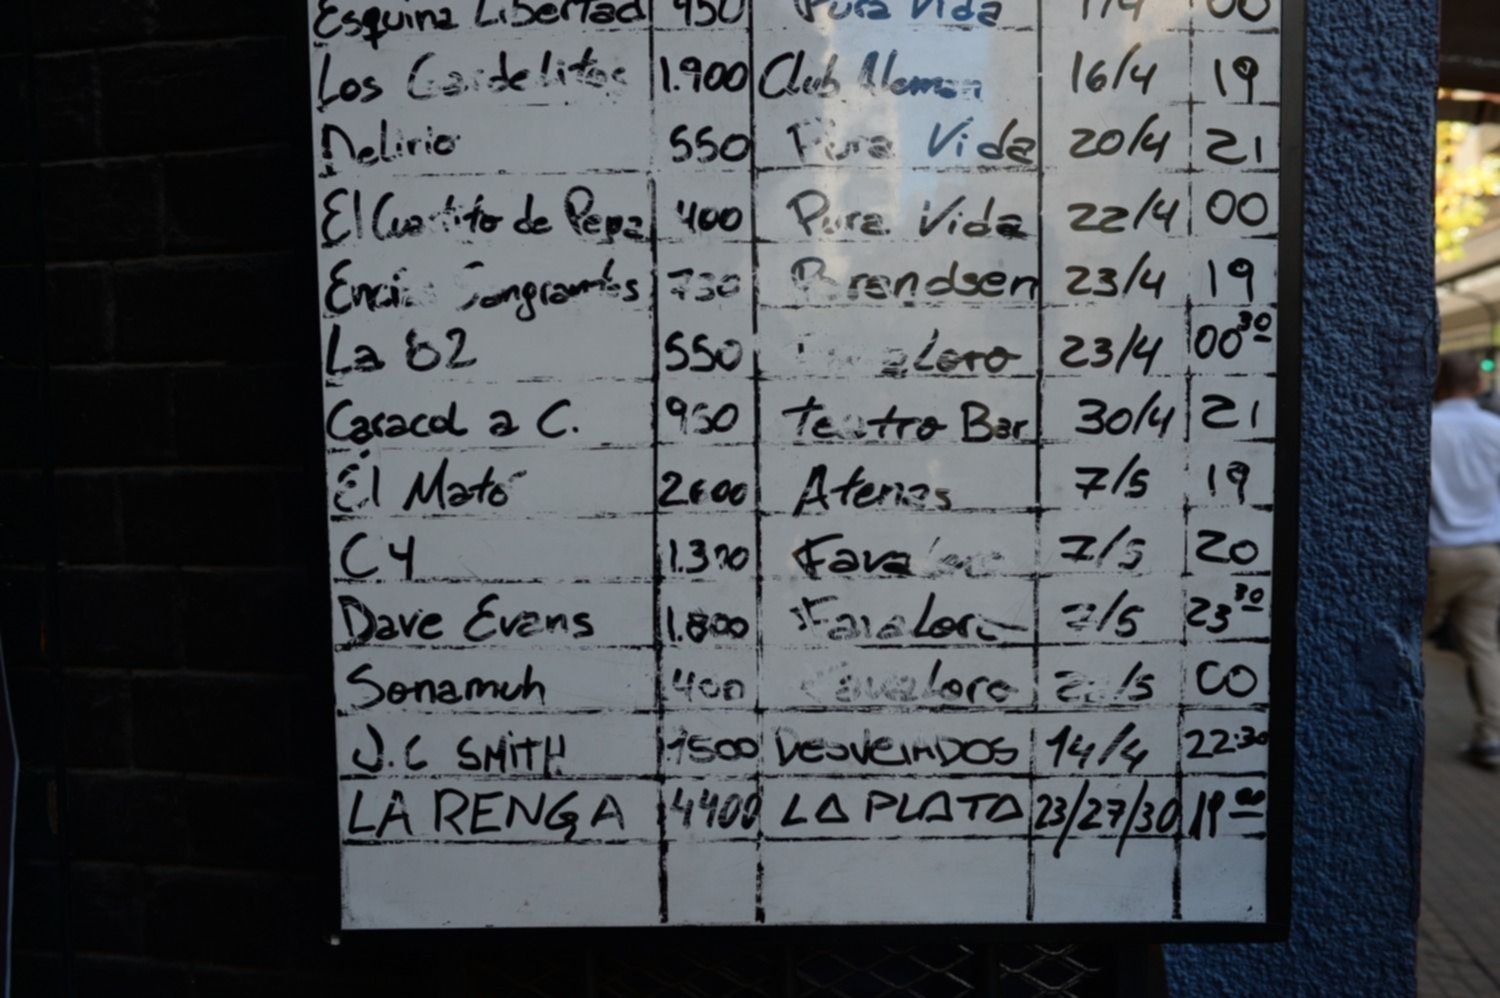 Esquina Libertad 950 Pura Vida 00
Los Gardelitos 1.900 Club Aleman 16/4 19
Delirio 550 Pura Vida 20/4 21
El Cuartito de Pepa 400 Pura Vida 22/4 00
Encías Sangrantes 730 Berendsen 23/4 19
La 62 550 23/4 00 30
Caracol a C. 950 Teatro Bar 30/4 21
Él Mató 2600 Atenas 7/5 19
C4 1.300 Favaloro 7/5 20
Dave Evans 1.800 Favaloro 7/5 23 30
Sonamuh 400 Favaloro 00
J.C SMITH 1500 DESVEIADOS 14/4 22:30
LA RENGA 4400 LA PLATA 23/27/30 19 00